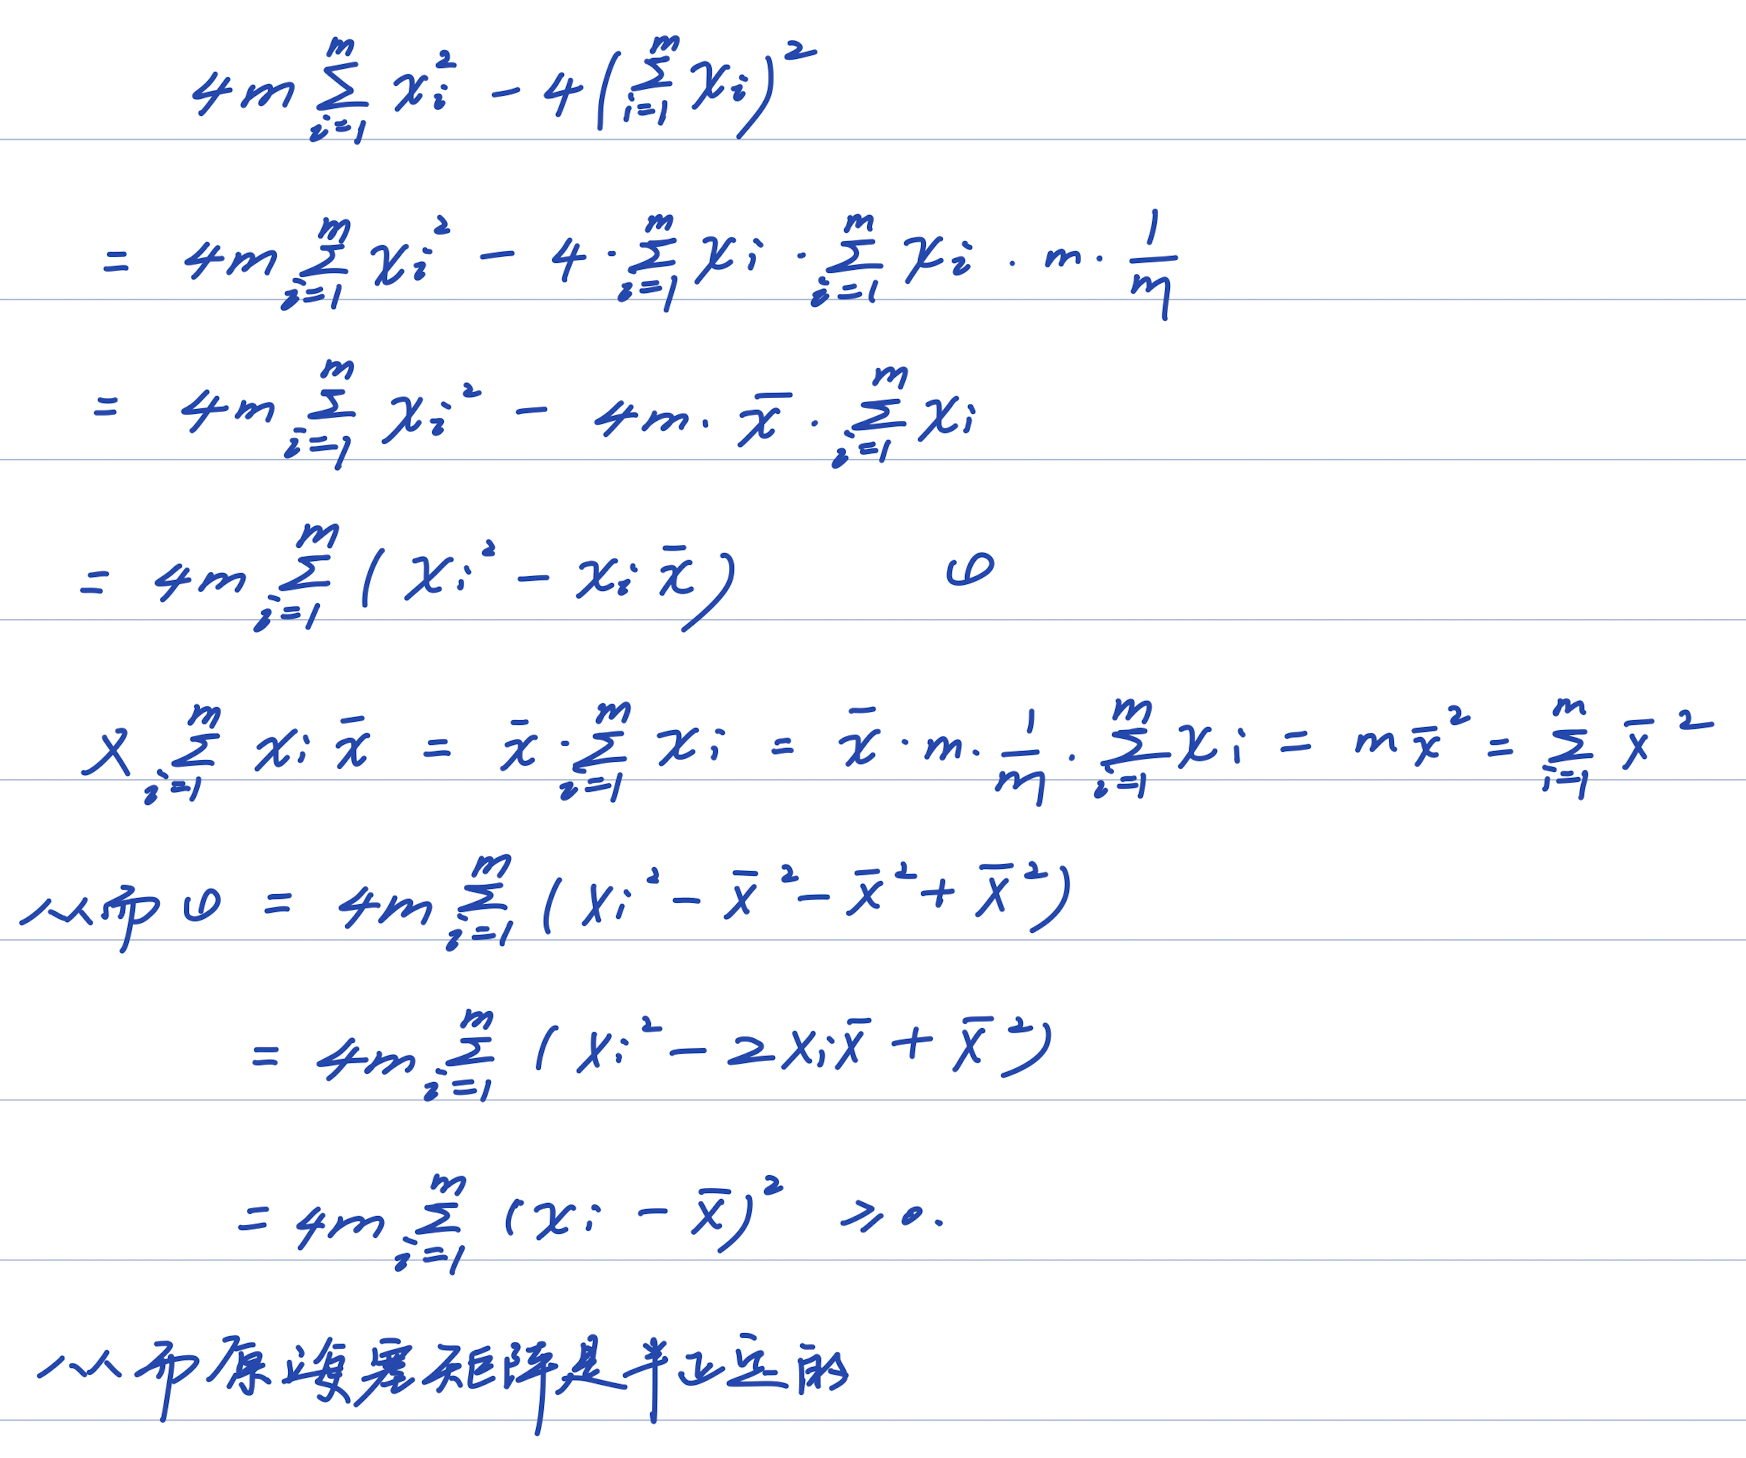 4m∑_{i=1}^{m} x_i^2 - 4(∑_{i=1}^{m} x_i)^2
= 4m∑_{i=1}^{m} x_i^2 - 4·∑_{i=1}^{m} x_i · ∑_{i=1}^{m} x_i · m · 1/m
= 4m∑_{i=1}^{m} x_i^2 - 4m· x̄ · ∑_{i=1}^{m} x_i
= 4m∑_{i=1}^{m} (x_i^2 - x_i x̄) φ
X ∑_{i=1}^{m} x_i x̄ = x̄ · ∑_{i=1}^{m} x_i = x̄ · m · 1/m · ∑_{i=1}^{m} x_i = m x̄^2 = ∑_{i=1}^{m} x̄^2
从而 φ = 4m∑_{i=1}^{m} (x_i^2 - x̄^2 - x̄^2 + x̄^2)
= 4m∑_{i=1}^{m} (x_i^2 - 2x_i x̄ + x̄^2)
= 4m∑_{i=1}^{m} (x_i - x̄)^2 ≥ 0.
从而原海塞矩阵是半正定的